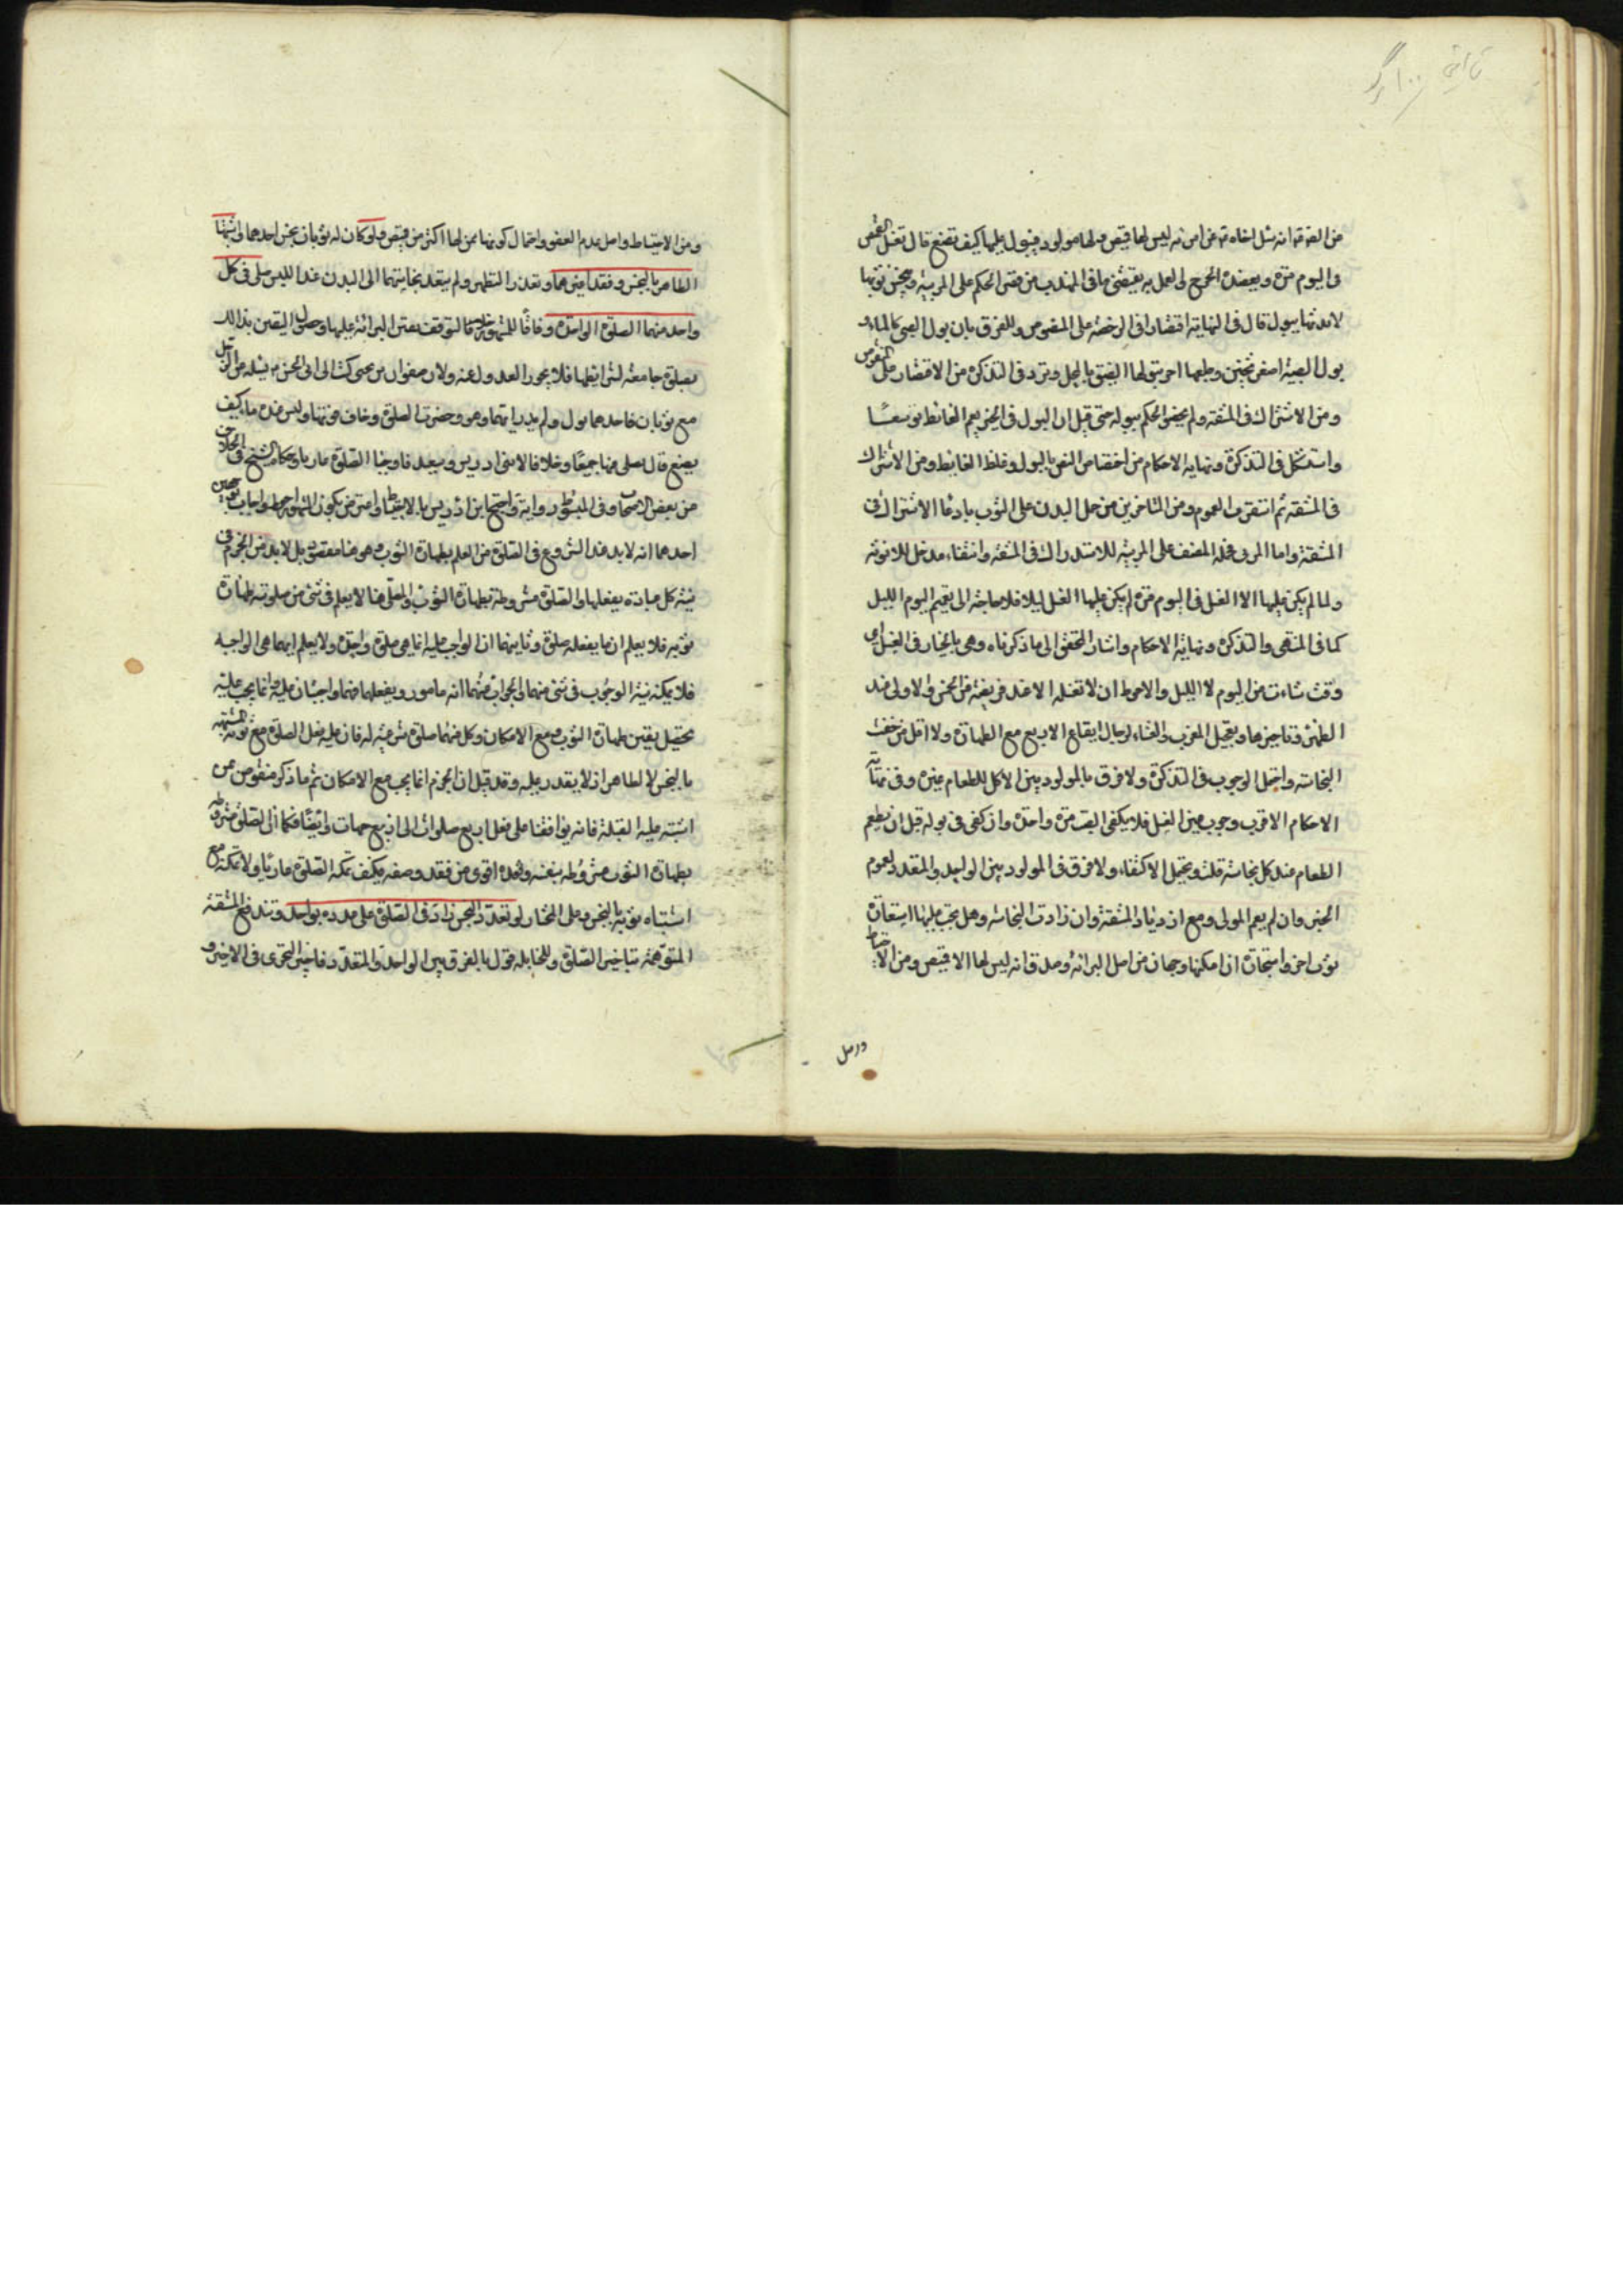 من العزتها انه سئل اخاه تها عن امرئه ليس لها قميص ولها مولود فيبول عليها كيف تصنع قال تغسل القميص
فى اليوم مرة ويعضده الحرج لى العمل به يقتضى ما فى المهذب من قصر الحكم على المربية وينجس ثوبها
لابدنها ببول قال فى النهاية اقتصارا فى الرخصة على المنصوص وللفرق بان بول الصبى كالماء و
بول الصبية اصفر ثخين وطبعها احر بتولها الصق بالمحل وتردد فى التذكرة من الاقتصار على المنصوص
ومن الاشتراك فى المشقة ولم يخص الحكم ببوله حتى قيل ان البول فى الخبر يعم الغائط توسعًا
واستشكل فى التذكرة ونهاية الاحكام من اختصاص النص بالبول وغلظ الغائط ومن الاشتراك
فى المشقة ثم العموم ومن المتاخرين من حمل البدن على الثوب بادعًا الاشتراك فى
المشقة واما المربى فحمله المصنف على المربية للاشتراك فى المشقة وانتفاء مدخل للانوثة
ولما لم يكن عليها الا الغسل فى اليوم مرة لم يكن عليها الغسل ليلا فلا حاجة الى تعميم اليوم الليل
كما فى المنتهى والتذكرة ونهاية الاحكام واشار المحقق الى ما ذكرناه وهى بالخيار فى الغسل اى
وقت شاءت من اليوم لا الليل والاحوط ان لا تغسله الا عند فريضة من الخمس والاولى عند
الظهر وتاخيرها وتعجيل المغرب والعشاء لرجاء ايقاع الاربع مع الطهارة ولا اقل من خفة
النجاسة واحتمل الوجوب فى التذكرة ولا فرق بالمولود بين الاكل للطعام وغيره وفى نهاية
الاحكام الاقرب وجوب عين الغسل فلا يكفى الصب مرة واحدة وان كفى فى بوله قبل ان يطعم
الطعام عند كل نجاسة قلت ويحتمل الاكتفاء ولا فرق فى المولود بين الواحد والمتعدد لعموم
الخبر وان لم يعم المولى ومع ازدياد المشقة وان زادت النجاسة وهل يجب عليها استعارة
ثوب اخر واستيجاره ان امكنها وجهان من اصل البرائة وصدق انه ليس لها الا قميص ومن الاحتياط
ومن الاحتياط واصل عدم العفو واحتمال كونها ممن لها اكثر من قميص ولو كان له ثوبان نجس احدهما واشتبها
الطاهر بالنجس وفقد غيرهما وتعذر التطهير ولم يتعد نجاستهما الى البدن عند اللبس صلى فى كل
واحد منهما الصلوة الواحدة وفاقًا للمشهور لتوقف يقين البرائة عليها وحصول اليقين بذالك
بصلوة جامعة لشرائطها فلا يجوز العدول عنه ولان صفوان بن يحيى كتب الى ابى الحسن ع يسئله عن الرجل
مع ثوبان فاصاب احدهما بول ولم يدر ايهما وهو وحضرت الصلوة وخاف فوتها وليس عنده ماء كيف
يصنع قال يصلى فيهما جميعًا وخلافا لابنى ادريس وسعيد فاوجبا الصلوة عاريا وحكاه الشيخ فى الخلاف عن
عن بعض الاصحاب وفى المبسوط رواية واحتج ابن ادريس بالاحتياط واعترض بكون المشهور احوط واجاب بوجهين
احدهما انه لابد عند الشروع فى الصلوة من العلم بطهارة الثوب وهو هنا مفقود بل لابد من الجزم فى
نية كل عبادة بفعلها والصلوة مشروطة بطهارة الثوب والمصلى هنا لا يعلم فى شئ من صلوته طهارة
ثوبه فلا يعلم ان ما يفعله صلوة وثانيهما ان الواجب عليه انما هى صلوة واحدة ولا يعلم ايهما هى الواجبه
فلا يمكنه نية الوجوب فى شئ منهما والجواب عنهما انه مامور بفعلهما فهما واجبتان عليه وانما يجب عليه
تحصيل يقين طهارة الثوب مع الامكان وكل منهما صلوة شرعية له فان عليه فعل الصلوة مع ثوبه المشتبه
بالنجس لا الطاهر اذ لا يقدر عليه وقد قيل ان الجزم انما يجب مع الامكان ثم ما ذكر منقوض بمن
اشتبه عليه القبلة فانه يوافقنا على فعل اربع صلوات الى اربع جهات وايضًا فكما ان الصلوة مشروطه
بطهارة الثوب مشروطه بنفسه وفقده اقوى من فقد وصفه فكيف يمكنه الصلوة عاريًا ولا يمكنه مع
اشتباه ثوبيه بالنجس وعلى المختار لو تعدد النجس زاد فى الصلوة على عدده بواحد وتندفع المشقة
المتوهمة بتاخير الصلوة وللحنابله قول بالفرق بين الواحد والمتعدد فاجيز التحرى فى الاخير و